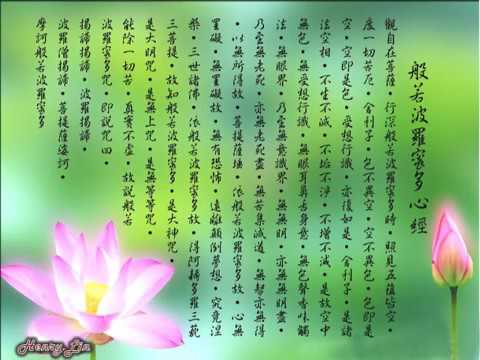 般若波羅蜜多心經
觀自在菩薩‧行深般若波羅蜜多時‧照見五蘊皆空‧
度一切苦厄‧舍利子‧色不異空‧空不異色‧色即是
空‧空即是色‧受想行識‧亦復如是‧舍利子‧是諸
法空相‧不生不滅‧不垢不淨‧不增不減‧是故空中
無色‧無受想行識‧無眼耳鼻舌身意‧無色聲香味觸
法‧無眼界‧乃至無意識界‧無無明‧亦無無明盡‧
乃至無老死‧亦無老死盡‧無苦集滅道‧無智亦無得
‧以無所得故‧菩提薩埵‧依般若波羅蜜多故‧心無
罣礙‧無罣礙故‧無有恐怖‧遠離顛倒夢想‧究竟涅
槃‧三世諸佛‧依般若波羅蜜多故‧得阿耨多羅三藐
三菩提‧故知般若波羅蜜多‧是大神咒‧
是大明咒‧是無上咒‧是無等等咒‧
能除一切苦‧真實不虛‧故說般若
波羅蜜多咒‧即說咒曰‧
揭諦揭諦‧波羅揭諦‧
波羅僧揭諦‧菩提薩婆訶‧
摩訶般若波羅蜜多
Henry.Lin